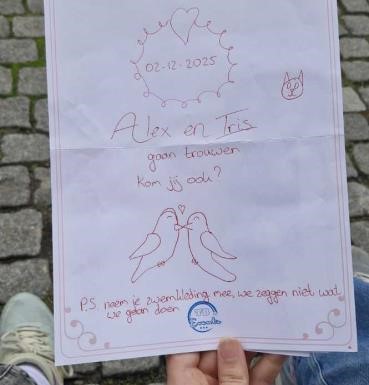 02-12-2025
Alex en Iris
gaan trouwen
Kom jij ook?
P.S. neem je zwemkleding mee, we zeggen niet wat
we gaan doen